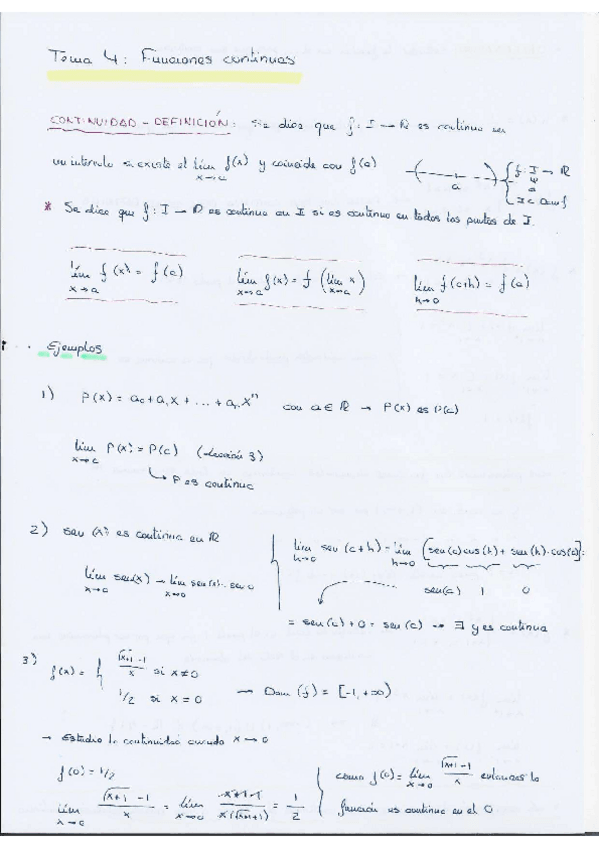 Tema 4: Funciones continuas
CONTINUIDAD - DEFINICIÓN: Se dice que f: I → ℝ es continua en
un intervalo si existe el lím f(x) y coincide con f(a)
x→a
a
f: I → ℝ
a
* Se dice que f: I → ℝ es continua en I si es continua en todos los puntos de I.
lím f(x) = f(c) lím f(x) = f (lím x) lím f(c+h) = f(c)
x→c x→a x→a h→0
Ejemplos
1) P(x) = a₀ + a₁x + ... + aₙxⁿ con a ∈ ℝ → P(x) es P(c)
lím P(x) = P(c) (lección 3)
x→c
↳ P es continua
2) sen(x) es continua en ℝ
lím sen(c+h) = lím [sen(c)cos(h) + sen(h)·cos(c)] =
h→0 h→0
lím sen(x) → lím sen(x) = sen 0
x→c x→0
sen(c) 1 0
= sen(c) + 0 = sen(c) → ∃ y es continua
3) f(x) = { (√(x+1) - 1)/x si x≠0
1/2 si x = 0 → Dom(f) = [-1, +∞)
→ Estudio la continuidad cuando x → 0
f(0) = 1/2
lím (√(x+1) - 1)/x = lím (x+1-1)/(x(√(x+1)+1)) = 1/2
x→0 x→0
como f(0) = lím (√(x+1) - 1)/x entonces la
x→0
función es continua en el 0